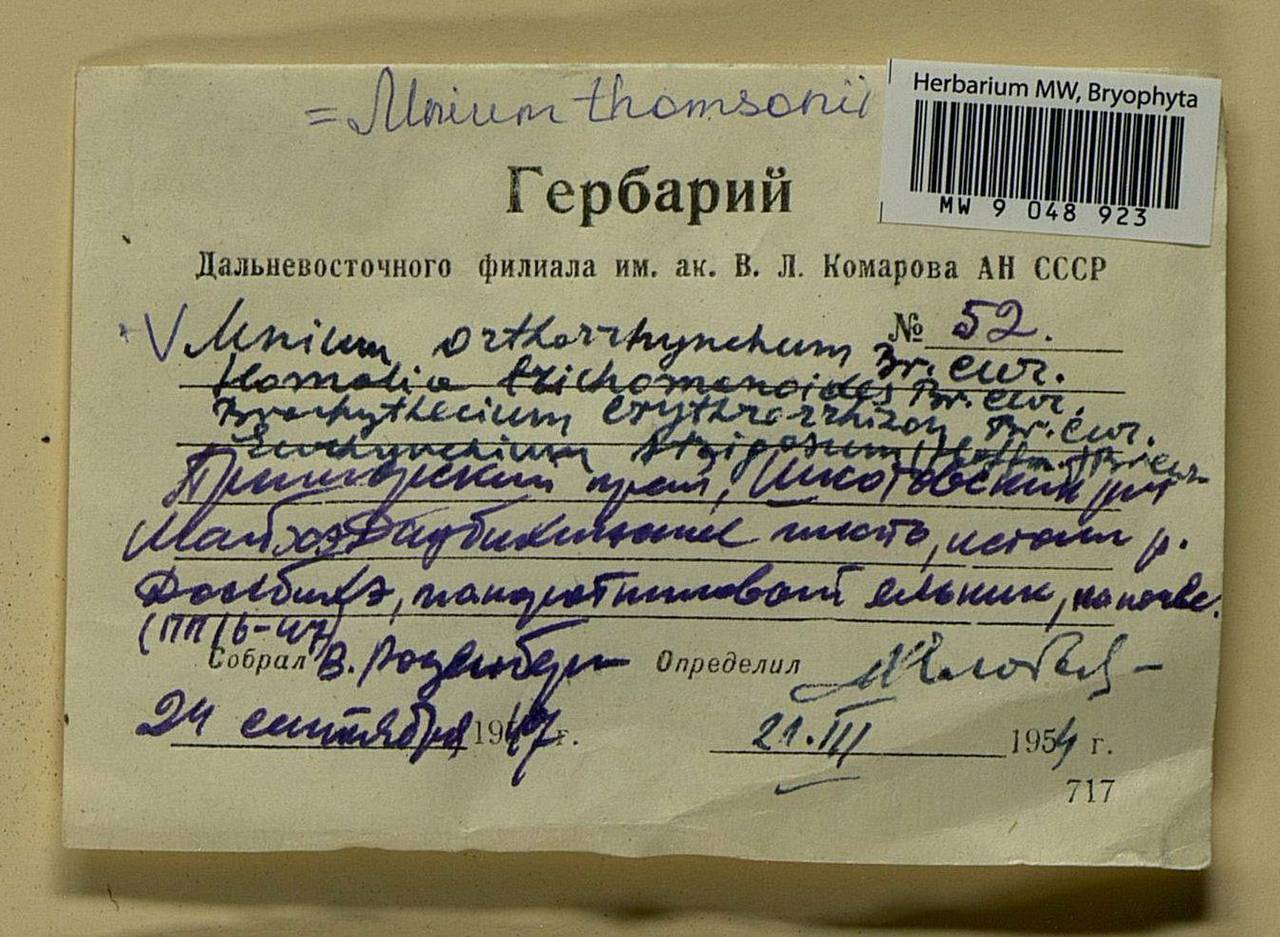 = Mnium thomsonii
Herbarium MW, Bryophyta
MW 9 048 923
Гербарий
Дальневосточного филиала им. ак. В. Л. Комарова АН СССР
№ 52.
V Mnium orthorrhynchum Br. eur.
Homalia trichomanoides Br. eur.
Brachythecium erythrorrhizon Br. eur.
Eurhynchium strigosum (Hoffm.) Br. eur.
Приморский край, Шкотовский р-н
истоки р.
ельник, на почве.
(ПП 16-47)
Собрал В. Розенберг Определил
24 сентября 1947 г. 21.III 1954 г.
717